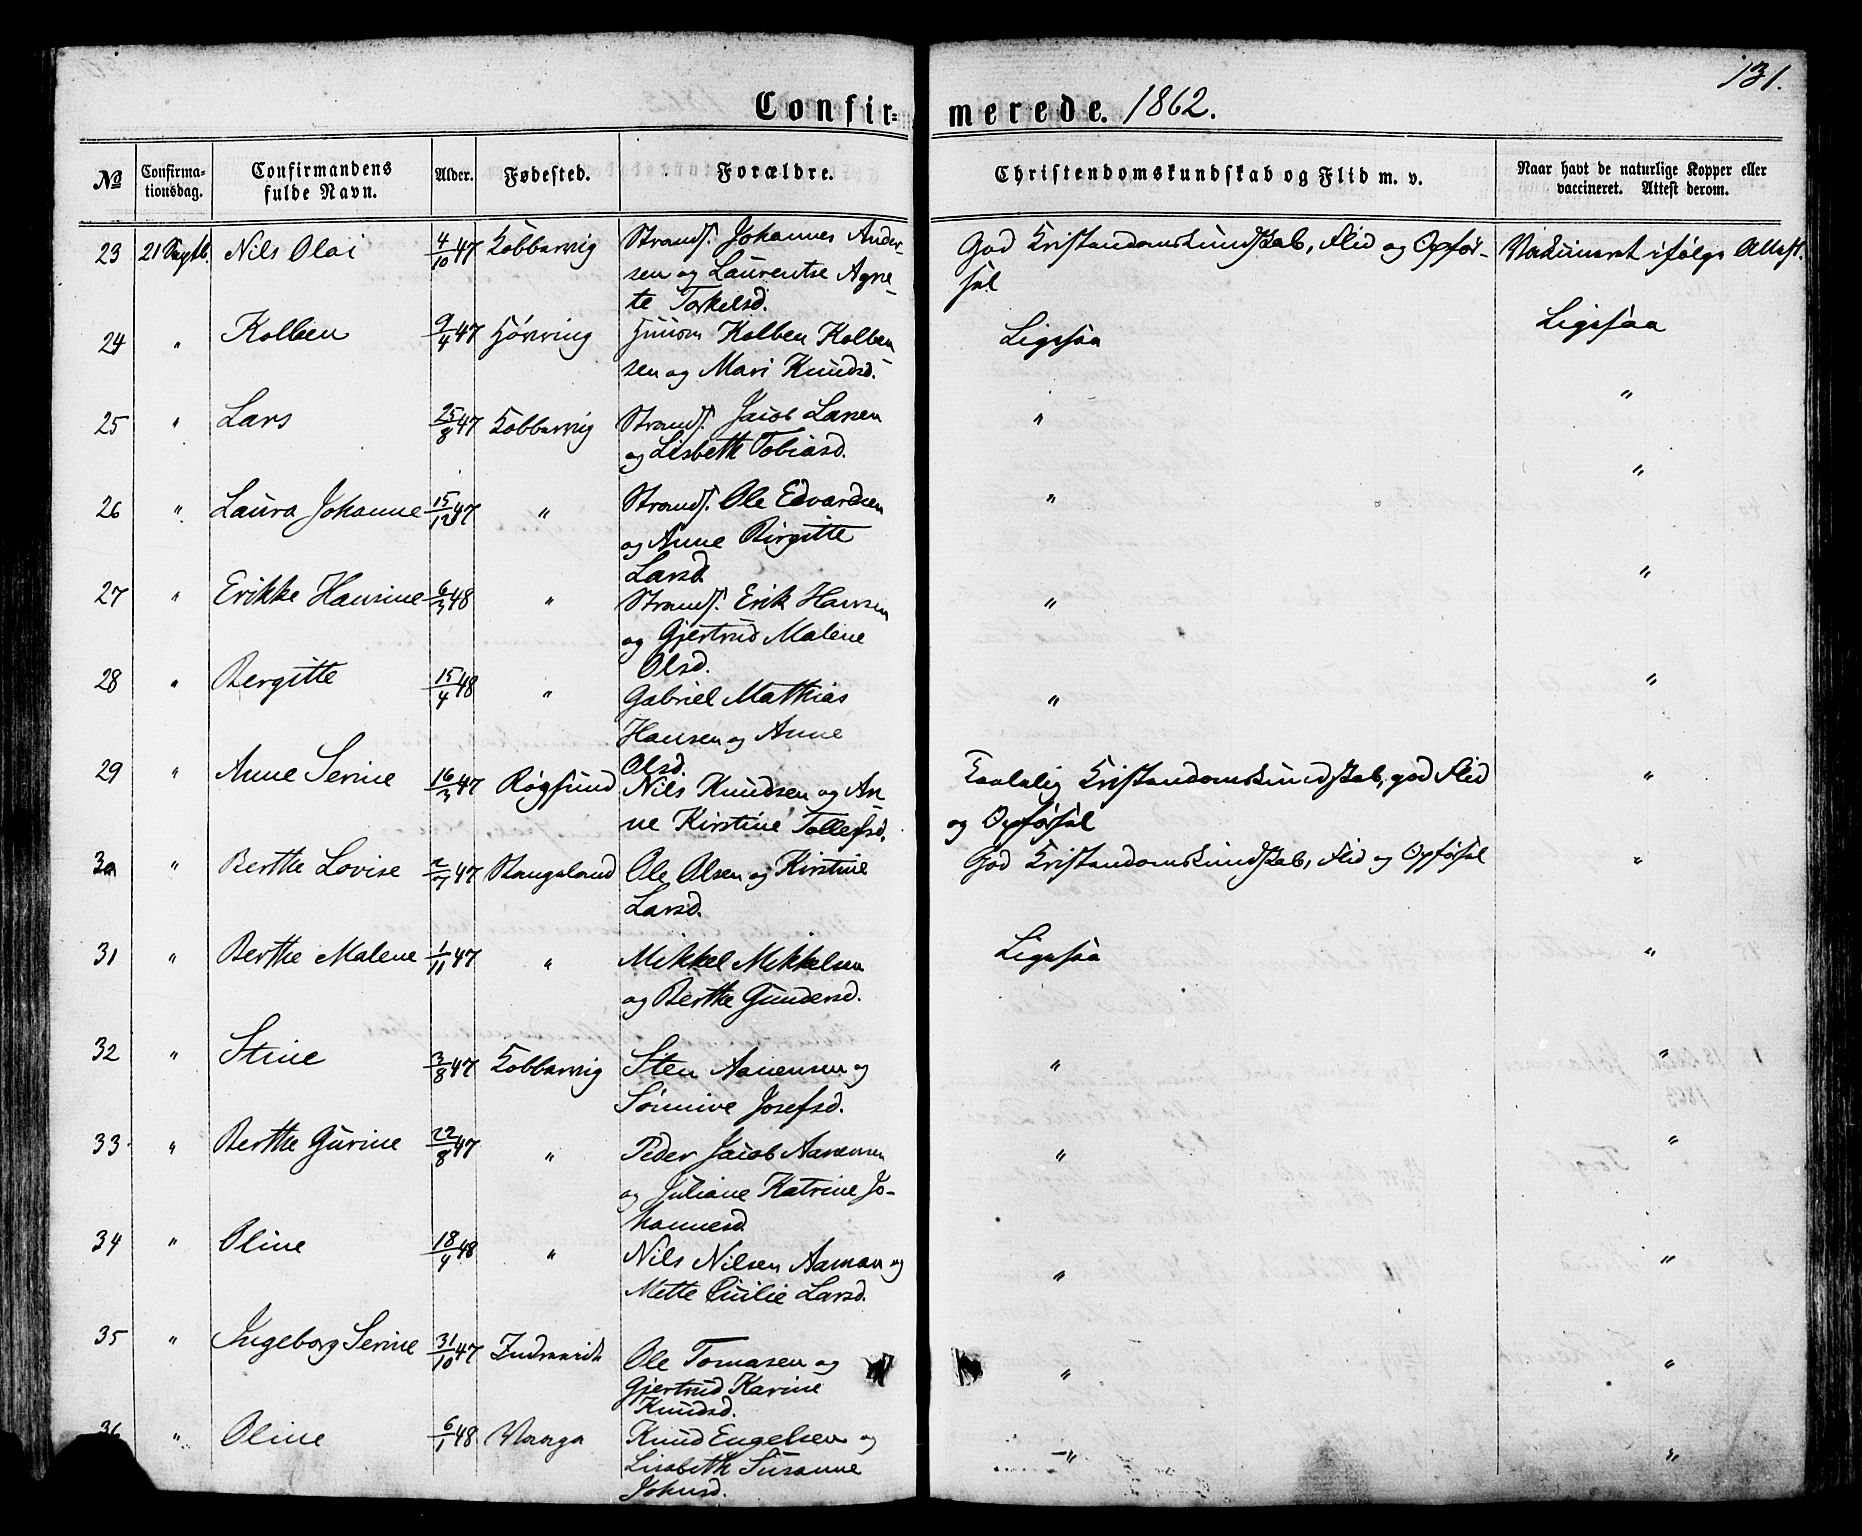 131.
Confir= merede. 1862.
No Confirma-tionsdag. Confirmandens fulde Navn. Alder. Fødested. Forældre. Christendomskundskab og Flid m. v. Naar havt de naturlige Kopper eller vaccineret. Attest derom.
23 21 Septb. Nils Olai 4/10 47 Kobbervig Strands. Johannes Ander- God Kristendomskundskab, Flid og Opfør- Vakcineret ifølge Attest.
sen og Laurentse Agne- sel
te Torkelsd.
24 " Kolben 9/4 47 Hørring Huusm Kolben Kolben Ligesaa Ligesaa
sen og Mari Knudsd.
25 " Lars 25/8 47 Kobbervig Strands. Jacob Larsen " "
og Lisbeth Tobiasd.
26 " Laura Johanne 15/12 47 " Strands. Ole Edvardsen " "
og Anne Birgitte
Larsd.
27 " Erikke Hansine 6/3 48 " Strands. Erik Hansen " "
og Gjertrud Malene
Olsd.
28 " Bergitte 15/4 48 " Gabriel Mathias " "
Hansen og Anne
Olsd.
29 " Anne Serine 16/3 47 Røgsund Nils Knudsen og An Taalelig Kristendomskundskab, god Flid "
ne Kirstine Tollefsd. og Opførsel
30 " Berthe Lovise 2/7 47 Stangeland Ole Olsen og Kirstine God Kristendomskundskab, Flid og Opførsel "
Larsd.
31 " Berthe Malene 1/11 47 " Mikkel Mikkelsen Ligesaa "
og Berthe Gundersd.
32 " Stine 3/8 47 Kobbervig Sten Aanensen og " "
Sønnive Josefsd.
33 " Berthe Gurine 22/8 47 " Peder Jacob Aanensen " "
og Juliane Katrine Jo-
hannesd.
34 " Oline 18/4 48 " Nils Nilsen Aaman og " "
Mette Cicilie Larsd.
35 " Ingeborg Serine 31/10 47 Indrevik Ole Tomasen og " "
Gjertrud Karine
Knudsd.
36 " Oline 6/1 48 Vaaga Knud Engelsen og -"- "
Lisabeth Susanne
Johnsd.